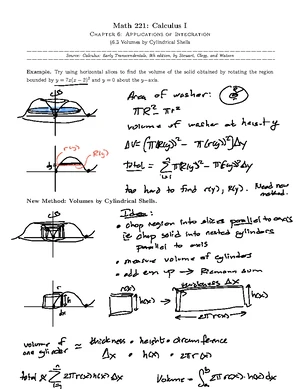 Math 221: Calculus I
Chapter 6: Applications of Integration
§6.3 Volumes by Cylindrical Shells
Source: Calculus: Early Transcendentals, 9th edition, by Stewart, Clegg, and Watson
Example. Try using horizontal slices to find the volume of the solid obtained by rotating the region
bounded by y = 7x(x − 2)² and y = 0 about the y-axis.
Area of washer:
πR² - πr²
Volume of washer at height y
ΔV = (π(R(y))² - π(r(y))²)Δy
r(y)
R(y)
total ≈ Σ πR(y)² - πr(y)² Δy
i=1
too hard to find r(y), R(y).
Need new
method.
New Method: Volumes by Cylindrical Shells.
Idea:
• chop region into slices parallel to axis
ie chop solid into nested cylinders
parallel to axis
• measure volume of cylinders
• add em up → Riemann sum
r
h
r(x)
h(x)
thickness Δx
h(x)
2πr(x)
volume of
one cylinder
≈ thickness · height · circumference
Δx · h(x) · 2πr(x)
total ≈ Σ 2πr(x)h(x)Δx
i=1
Volume = ∫ 2πr(x)h(x)dx